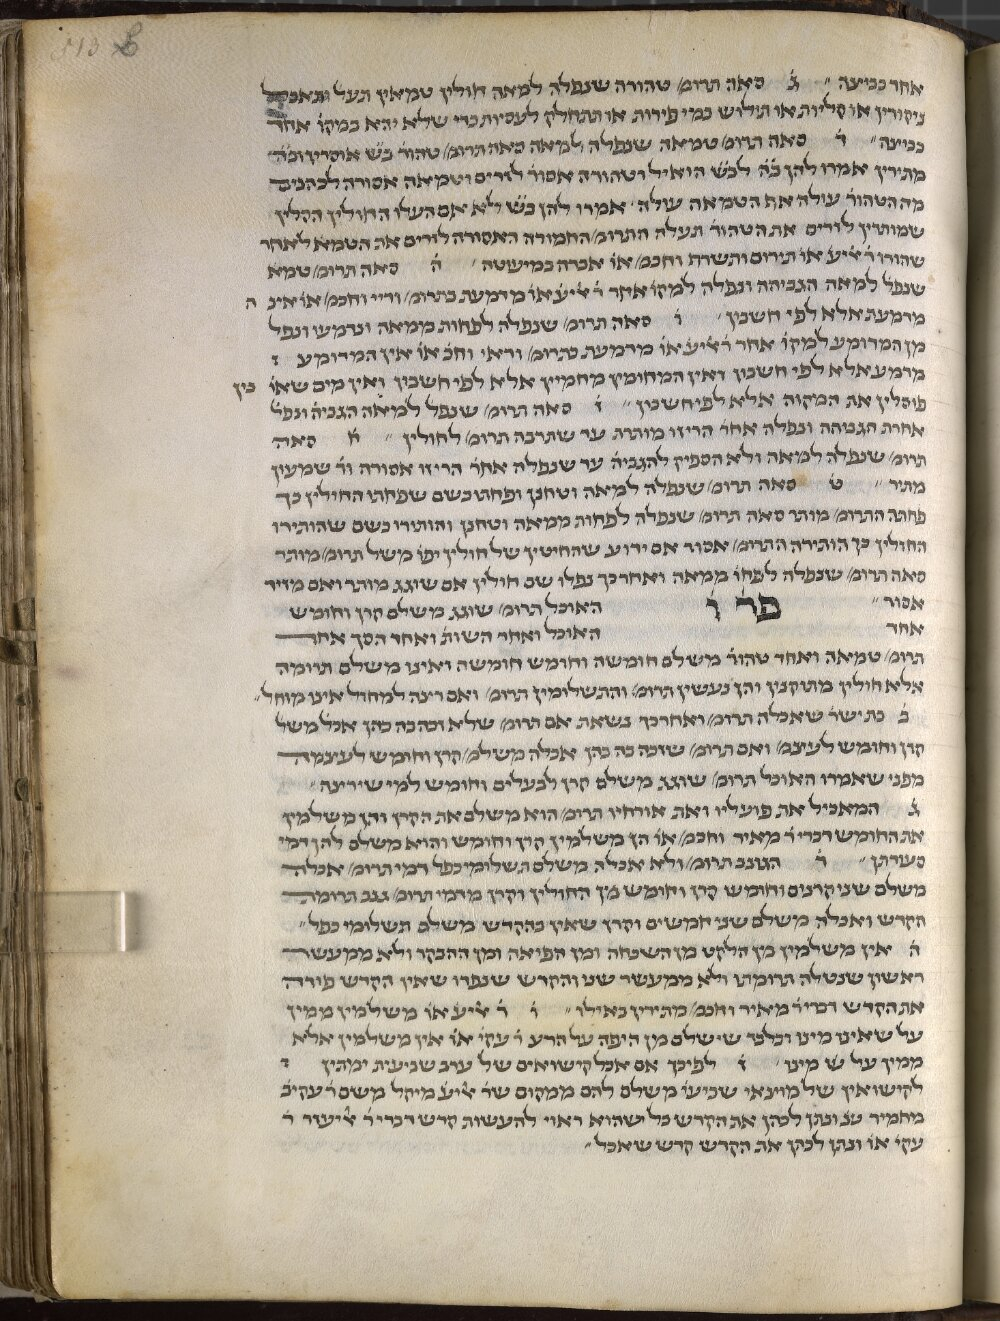 513
אחר ככיצה ״ ג סאה תרומ׳ טהורה שנפלה למאה חולין טמאין תעל ותאכל
ניקודין או קליות או תלוש במי פירות או תתחלק לעסיות כדי שלא יהא במקו׳ אחד
ככיצה ״ ד סאה תרומ׳ טמאה שנפלה למאה סאה תרומ׳ טהור׳ ב״ש אוסרין וב״ה
מתירין אמרו להן ב״ה לב״ש הואיל וטהורה אסור׳ לזרים וטמאה אסורה לכהנים
מה הטהור׳ עולה אף הטמאה עולה אמרו להן ב״ש לא אם העלו החולין הקלין
שמותרין לזרים את הטהור׳ תעלה התרומ׳ החמורה האסורה לזרים את הטמא לאחר
שהודו ר׳ ליע׳ או׳ תירום ותשרף וחכמ׳ או׳ אבדה במיעוטה ״ ה סאה תרומ׳ טמא
שנפל׳ למאה הגביהה ונפלה למקו׳ אחר ר׳ ליע׳ או׳ מדמעת כתרומ׳ ודיי וחכמ׳ או׳ אינ׳ ה
מדמעת אלא לפי חשבון ״ ו סאה תרומ׳ שנפלה לפחות ממאה ונדמעו ונפל
מן המדומע למקו׳ אחר ר׳ ליע׳ או׳ מדמעת כתרומ׳ ודאי וחכ׳ או׳ אין המדומע
מדמע אלא לפי חשבון ואין המחומץ מחמיץ אלא לפי חשבון ואין מים שאו׳ בין
פוסלין את המקוה אלא לפי חשבון ״ ז סאה תרומ׳ שנפל׳ למאה הגביה׳ ונפל׳
אחרת הגביהה ונפלה אחר׳ הרי זו מותרת עד שתרבה תרומ׳ לחולין ״ ח סאה
תרומ׳ שנפלה למאה ולא הספיק להגביה׳ עד שנפלה אחר׳ הרי זו אסורה ור׳ שמעון
מתיר ״ ט סאה תרומ׳ שנפלה למאה וטחנן ופחתו כשם שפחתו החולין כך
פחתה התרומ׳ מותר סאה תרומ׳ שנפלה לפחות ממאה וטחנן והותירו כשם שהותירו
החולין כך הותירה התרומ׳ אסור אם ידוע שהחיטין של חולין יפו׳ משל תרומ׳ מותר
סאה תרומ׳ שנפלה לפחו׳ ממאה ואחר כך נפלו שם חולין אם שוגג מותר ואם מזיד
אסור ״ פר׳ ו׳ האוכל תרומ׳ שוגג משלם קרן וחומש
אחד האוכל ואחד השות׳ ואחד הסך אחד
תרומ׳ טמאה ואחד טהור׳ משלם חומשה וחומש חומשה ואינו משלם תרומה
אלא חולין מתוקנין והן נעשין תרומ׳ והתשלומין תרומ׳ ואם רצה למחול אינו מוחל ״
ב בת ישר׳ שאכלה תרומ׳ ואחר כך נשאת אם תרומ׳ שלא זכה בה כהן אכל׳ משל׳
קרן וחומש לעצמ׳ ואם תרומ׳ שזכה בה כהן אכלה משלמ׳ קרן וחומש לעצמה
מפני שאמרו האוכל תרומ׳ שוגג משלם קרן לבעלים וחומש למי שירצה ״
ג המאכיל את פועליו ואת אורחיו תרומ׳ הוא משלם את הקרן והן משלמין
את החומש דברי ר׳ מאיר וחכמ׳ או׳ הן משלמין קרן וחומש והוא משלם להן דמי
סעודתן ״ ד הגונב תרומ׳ ולא אכלה משלם תשלומי כפל דמי תרומ׳ אכלה
משלם שני קרנים וחומש קרן וחומש מן החולין וקרן מדמי תרומ׳ גנב תרומת
הקדש ואכלה משלם שני חמשים וקרן שאין בהקדש משלם תשלומי כפל ״
ה אין משלמין מן הלקט מן השכחה ומן הפיאה ומן ההבקר ולא ממעשר
ראשון שנטלה תרומתו ולא ממעשר שני והקדש שנפדו שאין הקדש פודה
את הקדש דברי ר׳ מאיר וחכמ׳ מתירין באילו ״ ו ר׳ ליע׳ או׳ משלמין ממין
על שאינו מינו ובלבד שישלם מן היפה על הרע ר׳ עקי׳ או׳ אין משלמין אלא
ממין על ש׳ מינו ״ ז לפיכך אם אכל קישואים של ערב שביעית ימתין
לקישואין של מוצאי שביעי׳ משלם להם ממקום שר׳ ליע׳ מיקל משם ר׳ עקיב׳
מחמיר שנ׳ ונתן לכהן את הקדש כל שהוא ראוי להעשות קדש דברי ר׳ ליעזר ר׳
עקי׳ או׳ ונתן לכהן את הקדש קדש שאכל ״